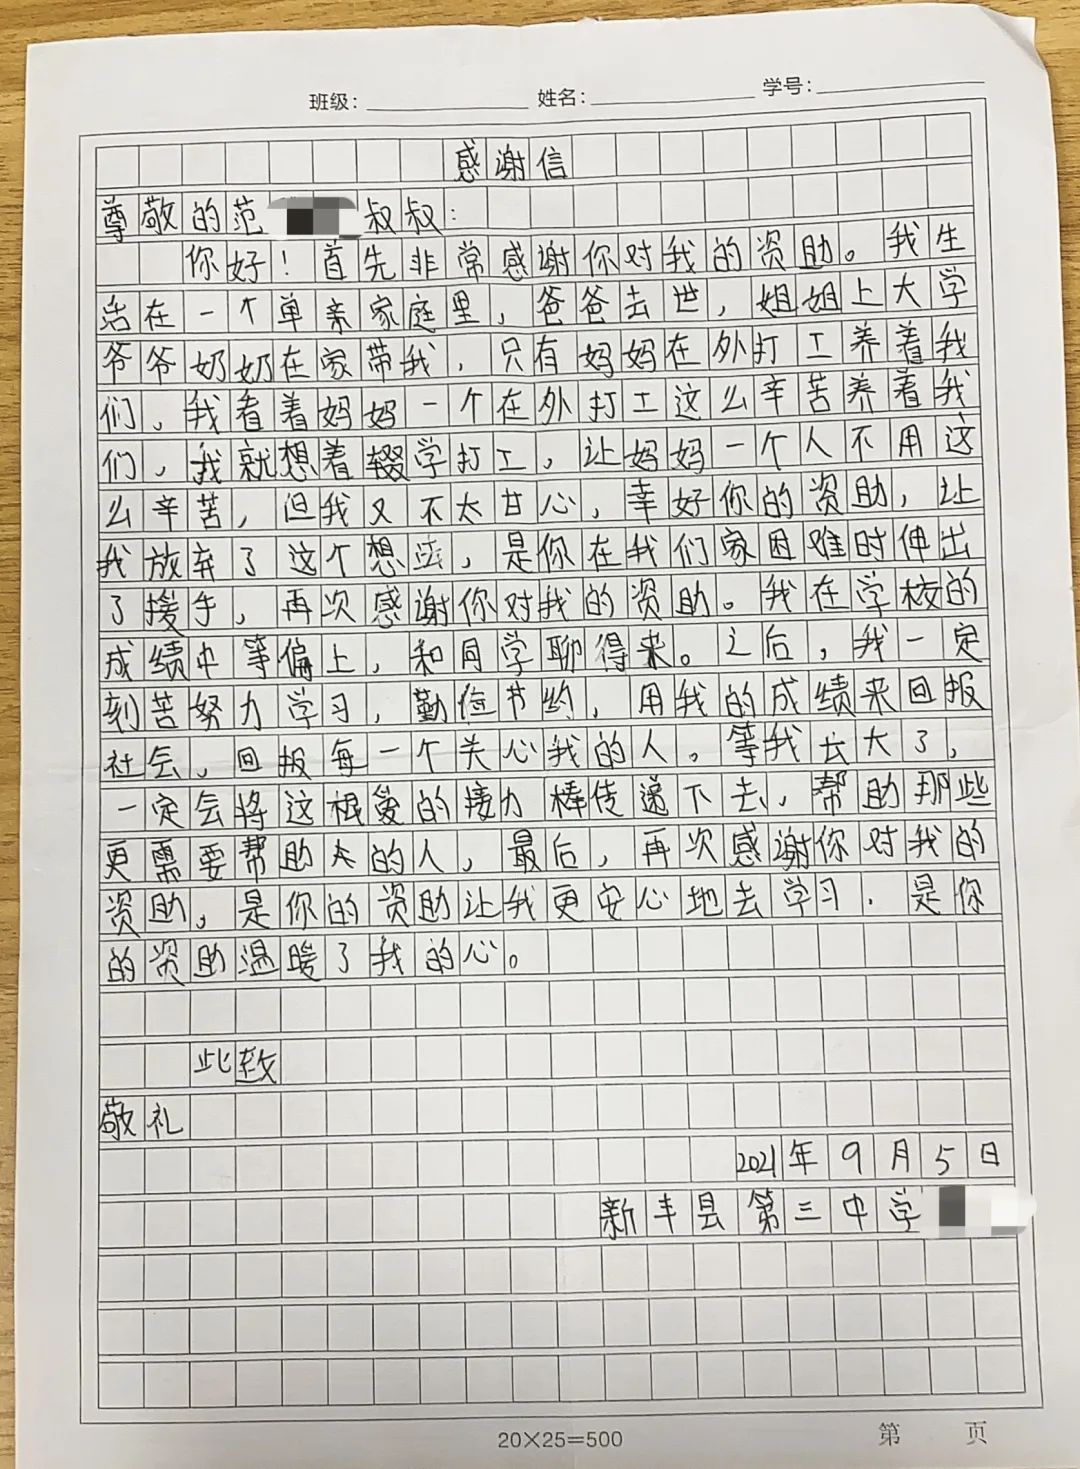 班级： 姓名： 学号：
感谢信
尊敬的范 叔叔：
你好！首先非常感谢你对我的资助。我生
活在一个单亲家庭里，爸爸去世，姐姐上大学
爷爷奶奶在家带我，只有妈妈在外打工养着我
们。我看着妈妈一个在外打工这么辛苦养着我
们，我就想着辍学打工，让妈妈一个人不用这
么辛苦，但我又不太甘心，幸好你的资助，让
我放弃了这个想，是你在我们家困难时伸出
了援手，再次感谢你对我的资助。我在学校的
成绩中等偏上，和同学聊得来。之后，我一定
刻苦努力学习，勤俭节约，用我的成绩来回报
社会，回报每一个关心我的人。等我长大了，
一定会将这根爱的接力棒传递下去，帮助那些
更需要帮助的人，最后，再次感谢你对我的
资助，是你的资助让我更安心地去学习．是你
的资助温暖了我的心。
此致
敬礼
2021年9月5日
新丰县第三中学
20×25=500 第 页